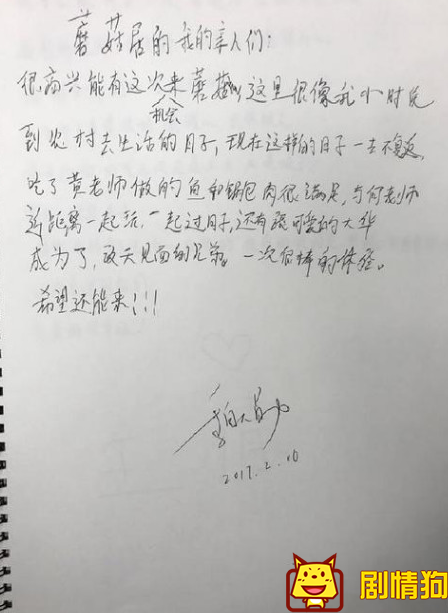 蘑菇屋的我的亲人们:
很高兴能有这次来蘑菇 这里很像我小时候
机会
到农村去生活的日子,现在这样的日子一去不复返,
吃了黄老师做的鱼和锅包肉很满足,与何老师
近距离一起玩,一起过日子,还有 可爱的大华
成为了, 天见面的兄弟。一次很棒的体验。
希望还能来!!!
2017.2.10
剧情狗